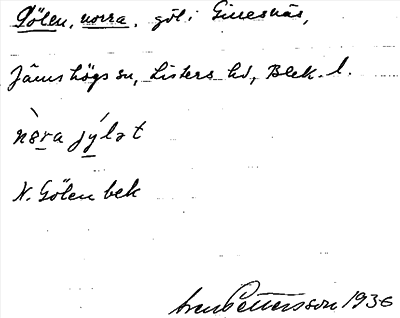 Gölen, norra, göl i Gussnäs,
Jämshögs sn, Listers hd, Blek. l.
nèra jýlət
N. Gölen bek
Sven Pettersson 1936